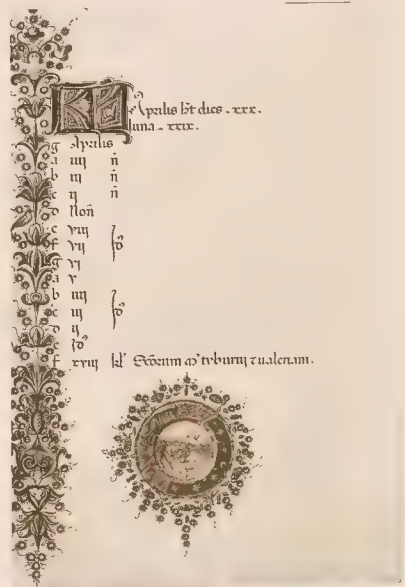 KL Aprilis ħt dies . xxx.
luna . xxix.
g Aprilis
a iiij n̄
b iij n̄
c ij n̄
d Non̄
e viij
f vij id'
g vj
a v
b iiij
c iij id'
d ij
e id'
f xviij kl' Sc̄orum m' tyburtij ⁊ ualeriani.